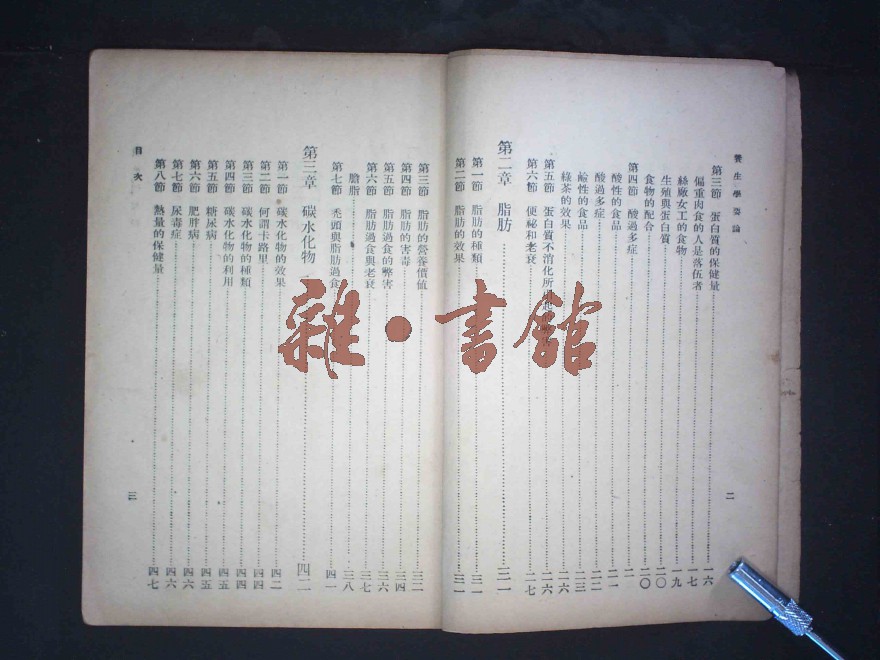 養生學要論
第三節 蛋白質的保健量 一六
偏重肉食的人是落伍者 一七
絲廠女工的食物 一九
生殖與蛋白質 二〇
食物的配合 二〇
第四節 酸過多症 二一
酸性的食品 二一
酸過多症 二二
鹼性的食品 二三
綠茶的效果 二六
第五節 蛋白質不消化所 二六
第六節 便祕和老衰 二七
第二章 脂肪 三一
第一節 脂肪的種類 三一
第二節 脂肪的效果 三一
二
第三節 脂肪的營養價値 三二
第四節 脂肪的害毒 三四
第五節 脂肪過食的弊害 三六
第六節 脂肪過食與老衰 三七
膽脂 三八
第七節 禿頭與脂肪過食 四一
第三章 碳水化物 四二
第一節 碳水化物的效果 四二
第二節 何謂卡路里 四四
第三節 碳水化物的種類 四四
第四節 碳水化物的利用 四五
第五節 糖尿病 四五
第六節 肥胖病 四六
第七節 尿毒症 四六
第八節 熱量的保健量 四七
目次
三
雜·書館